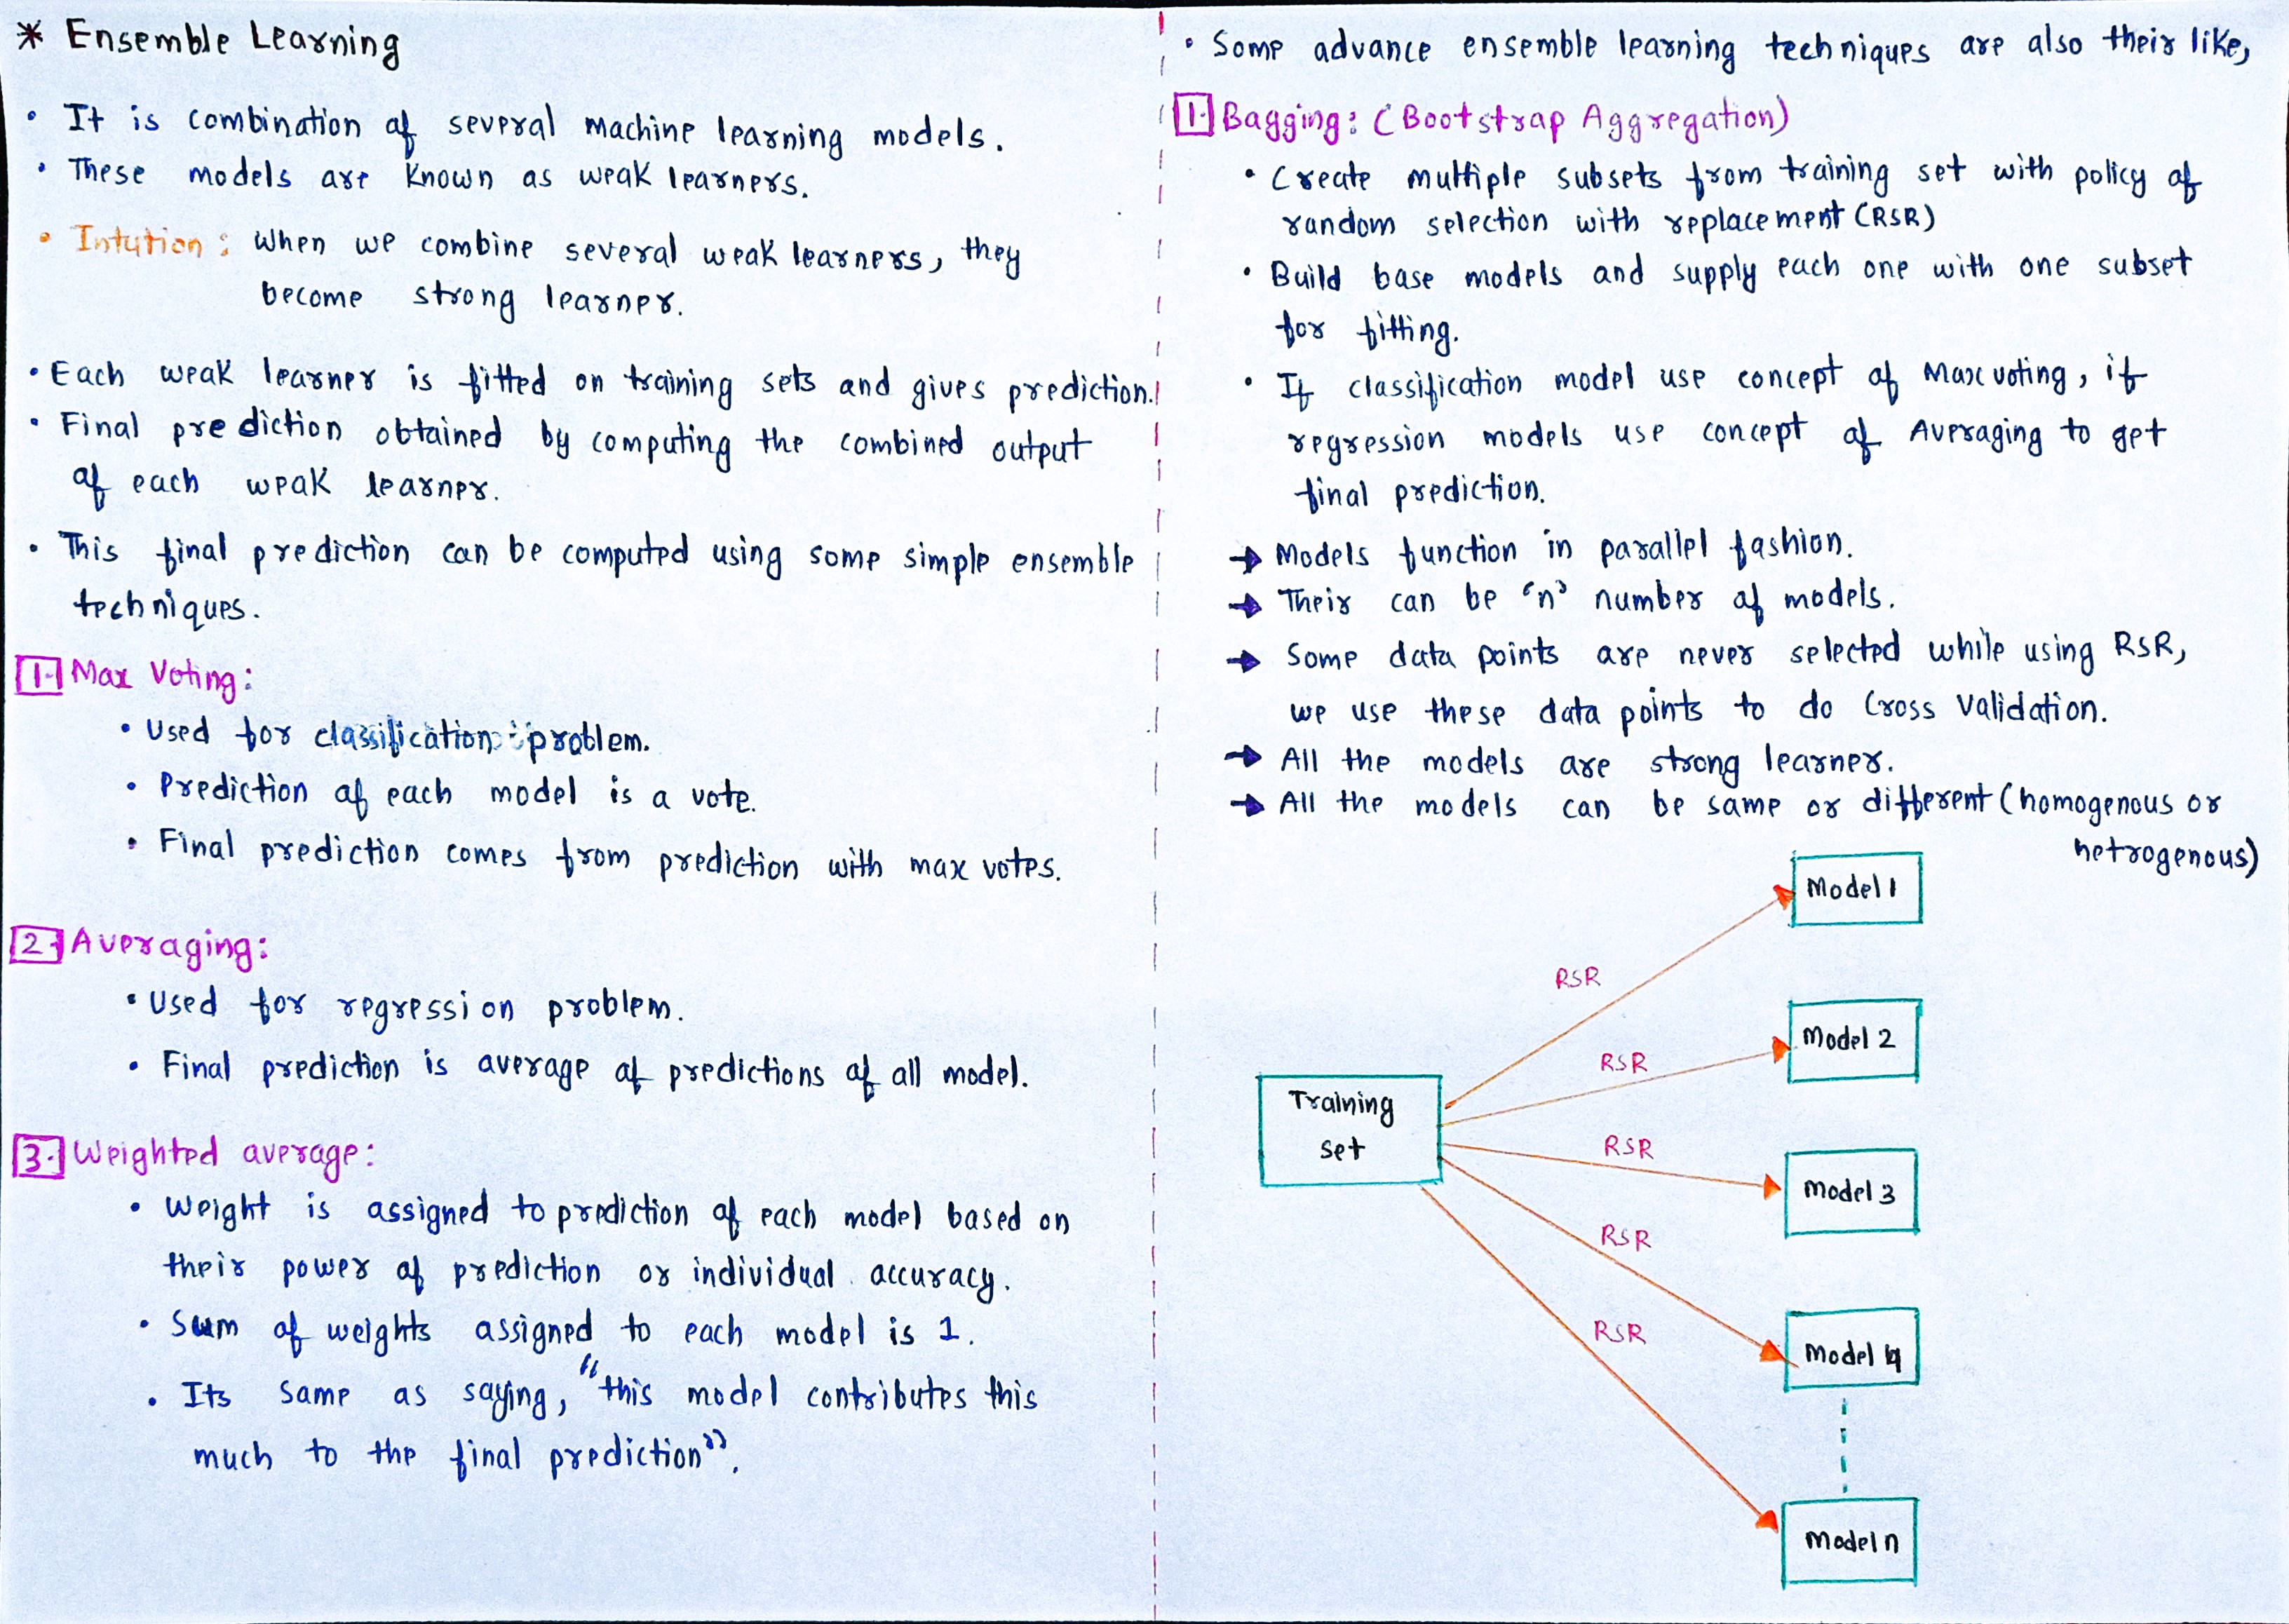 * Ensemble Learning
• It is combination of several machine learning models.
• These models are known as weak learners.
• Intution: When we combine several weak learners, they
become strong learner.
• Each weak learner is fitted on training sets and gives prediction.
• Final prediction obtained by computing the combined output
of each weak learner.
• This final prediction can be computed using some simple ensemble
techniques.
1. Max Voting:
• Used for classification problem.
• Prediction of each model is a vote.
• Final prediction comes from prediction with max votes.
2. Averaging:
• Used for regression problem.
• Final prediction is average of predictions of all model.
3. Weighted average:
• Weight is assigned to prediction of each model based on
their power of prediction or individual accuracy.
• Sum of weights assigned to each model is 1.
• Its same as saying, "this model contributes this
much to the final prediction".
• Some advance ensemble learning techniques are also their like,
1. Bagging: (Bootstrap Aggregation)
• Create multiple subsets from training set with policy of
random selection with replacement (RSR)
• Build base models and supply each one with one subset
for fitting.
• If classification model use concept of Max voting, if
regression models use concept of Averaging to get
final prediction.
→ Models function in parallel fashion.
→ Their can be 'n' number of models.
→ Some data points are never selected while using RSR,
we use these data points to do Cross Validation.
→ All the models are strong learner.
→ All the models can be same or different (homogenous or
hetrogenous)
Model 1
RSR
Model 2
RSR
Training
set
RSR
Model 3
RSR
RSR
Model 4
Model n